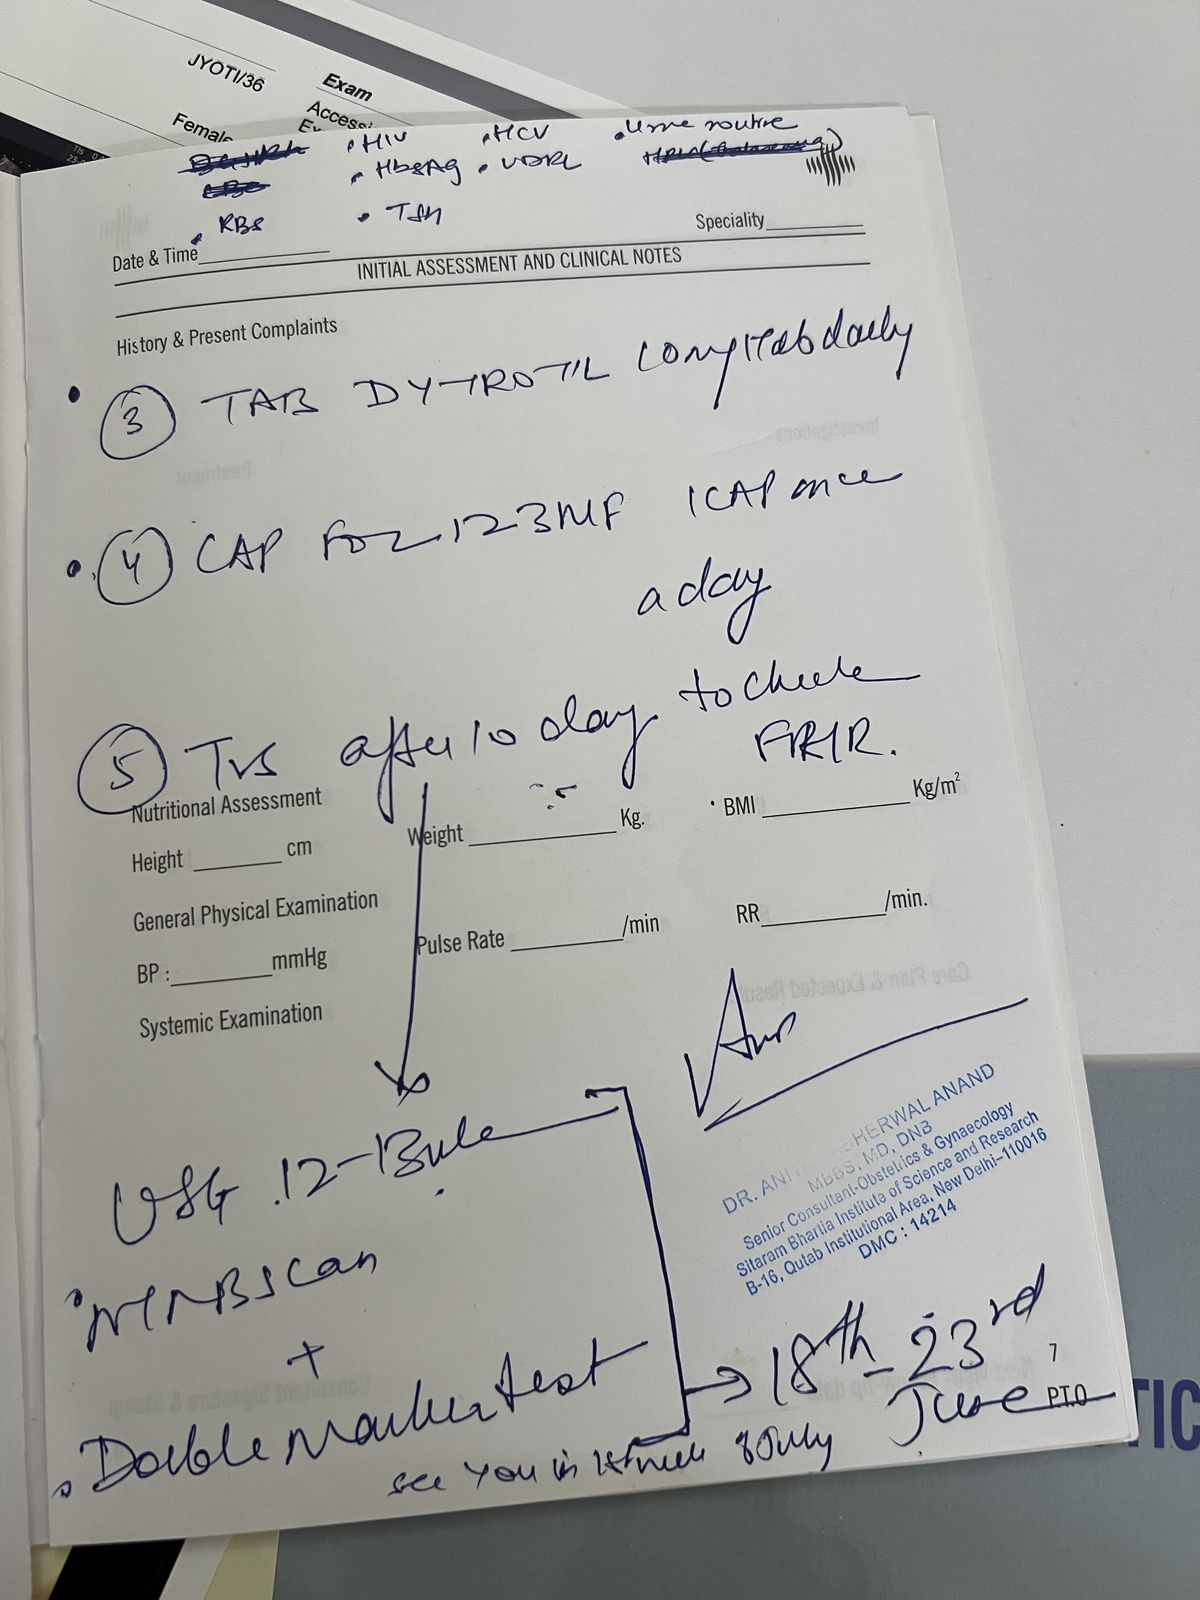 JYOTI/36
Exam
Female
Access
• HIV • HCV • Urine routine
• HbsAg • VDRL
• RBS • TSH
Date & Time
Speciality
INITIAL ASSESSMENT AND CLINICAL NOTES
History & Present Complaints
• 3 TAB DYTROTIL 1 tab daily
• 4 CAP 123MF 1 CAP once
a day
5 TVS after 10 day to check
Nutritional Assessment
Height cm Weight Kg. BMI Kg/m²
General Physical Examination
BP : mmHg Pulse Rate /min RR /min.
Systemic Examination
USG 12-13
• NT NB Scan
+
• Double Marker test
→ 18th - 23rd
June
see you in 8 July
DR. ANI HERWAL ANAND
MBBS, MD, DNB
Senior Consultant-Obstetrics & Gynaecology
Sitaram Bhartia Institute of Science and Research
B-16, Qutab Institutional Area, New Delhi-110016
DMC : 14214
7
P.T.O
TIC